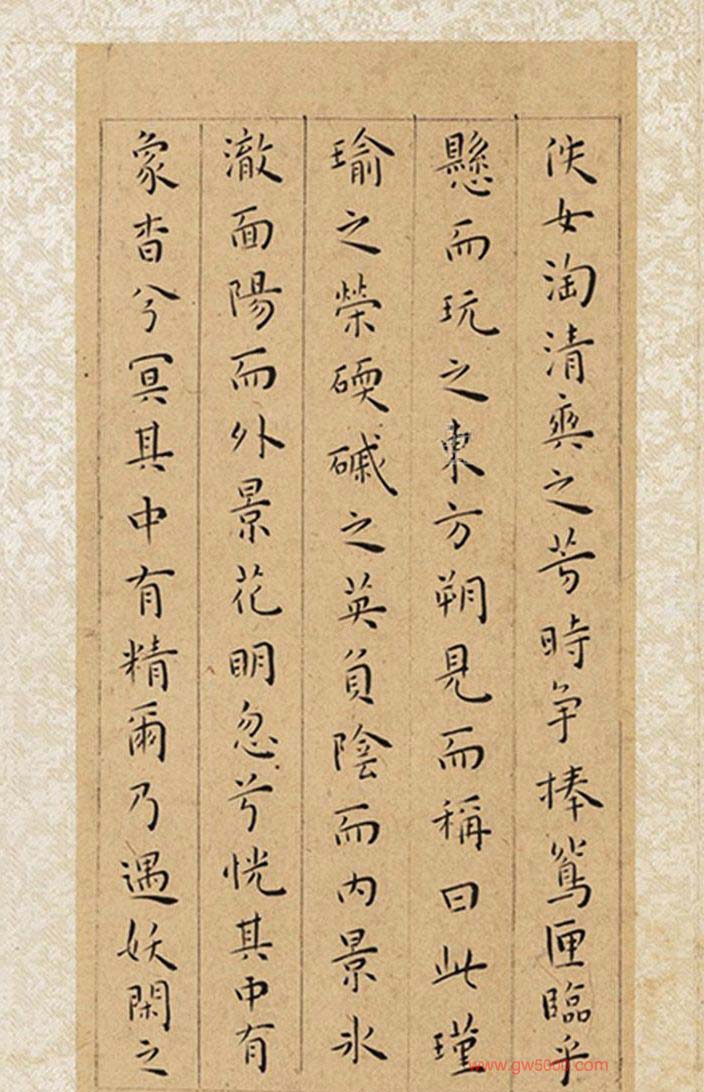 佚女淘清爽之芳時争捧鴛匣臨乎
懸而玩之東方朔見而稱曰此瑾
瑜之榮碝磩之英負陰而内景氷
澈面陽而外景花明忽兮恍其中有
象杳兮冥其中有精爾乃遇妖閑之
www.gw5000.com